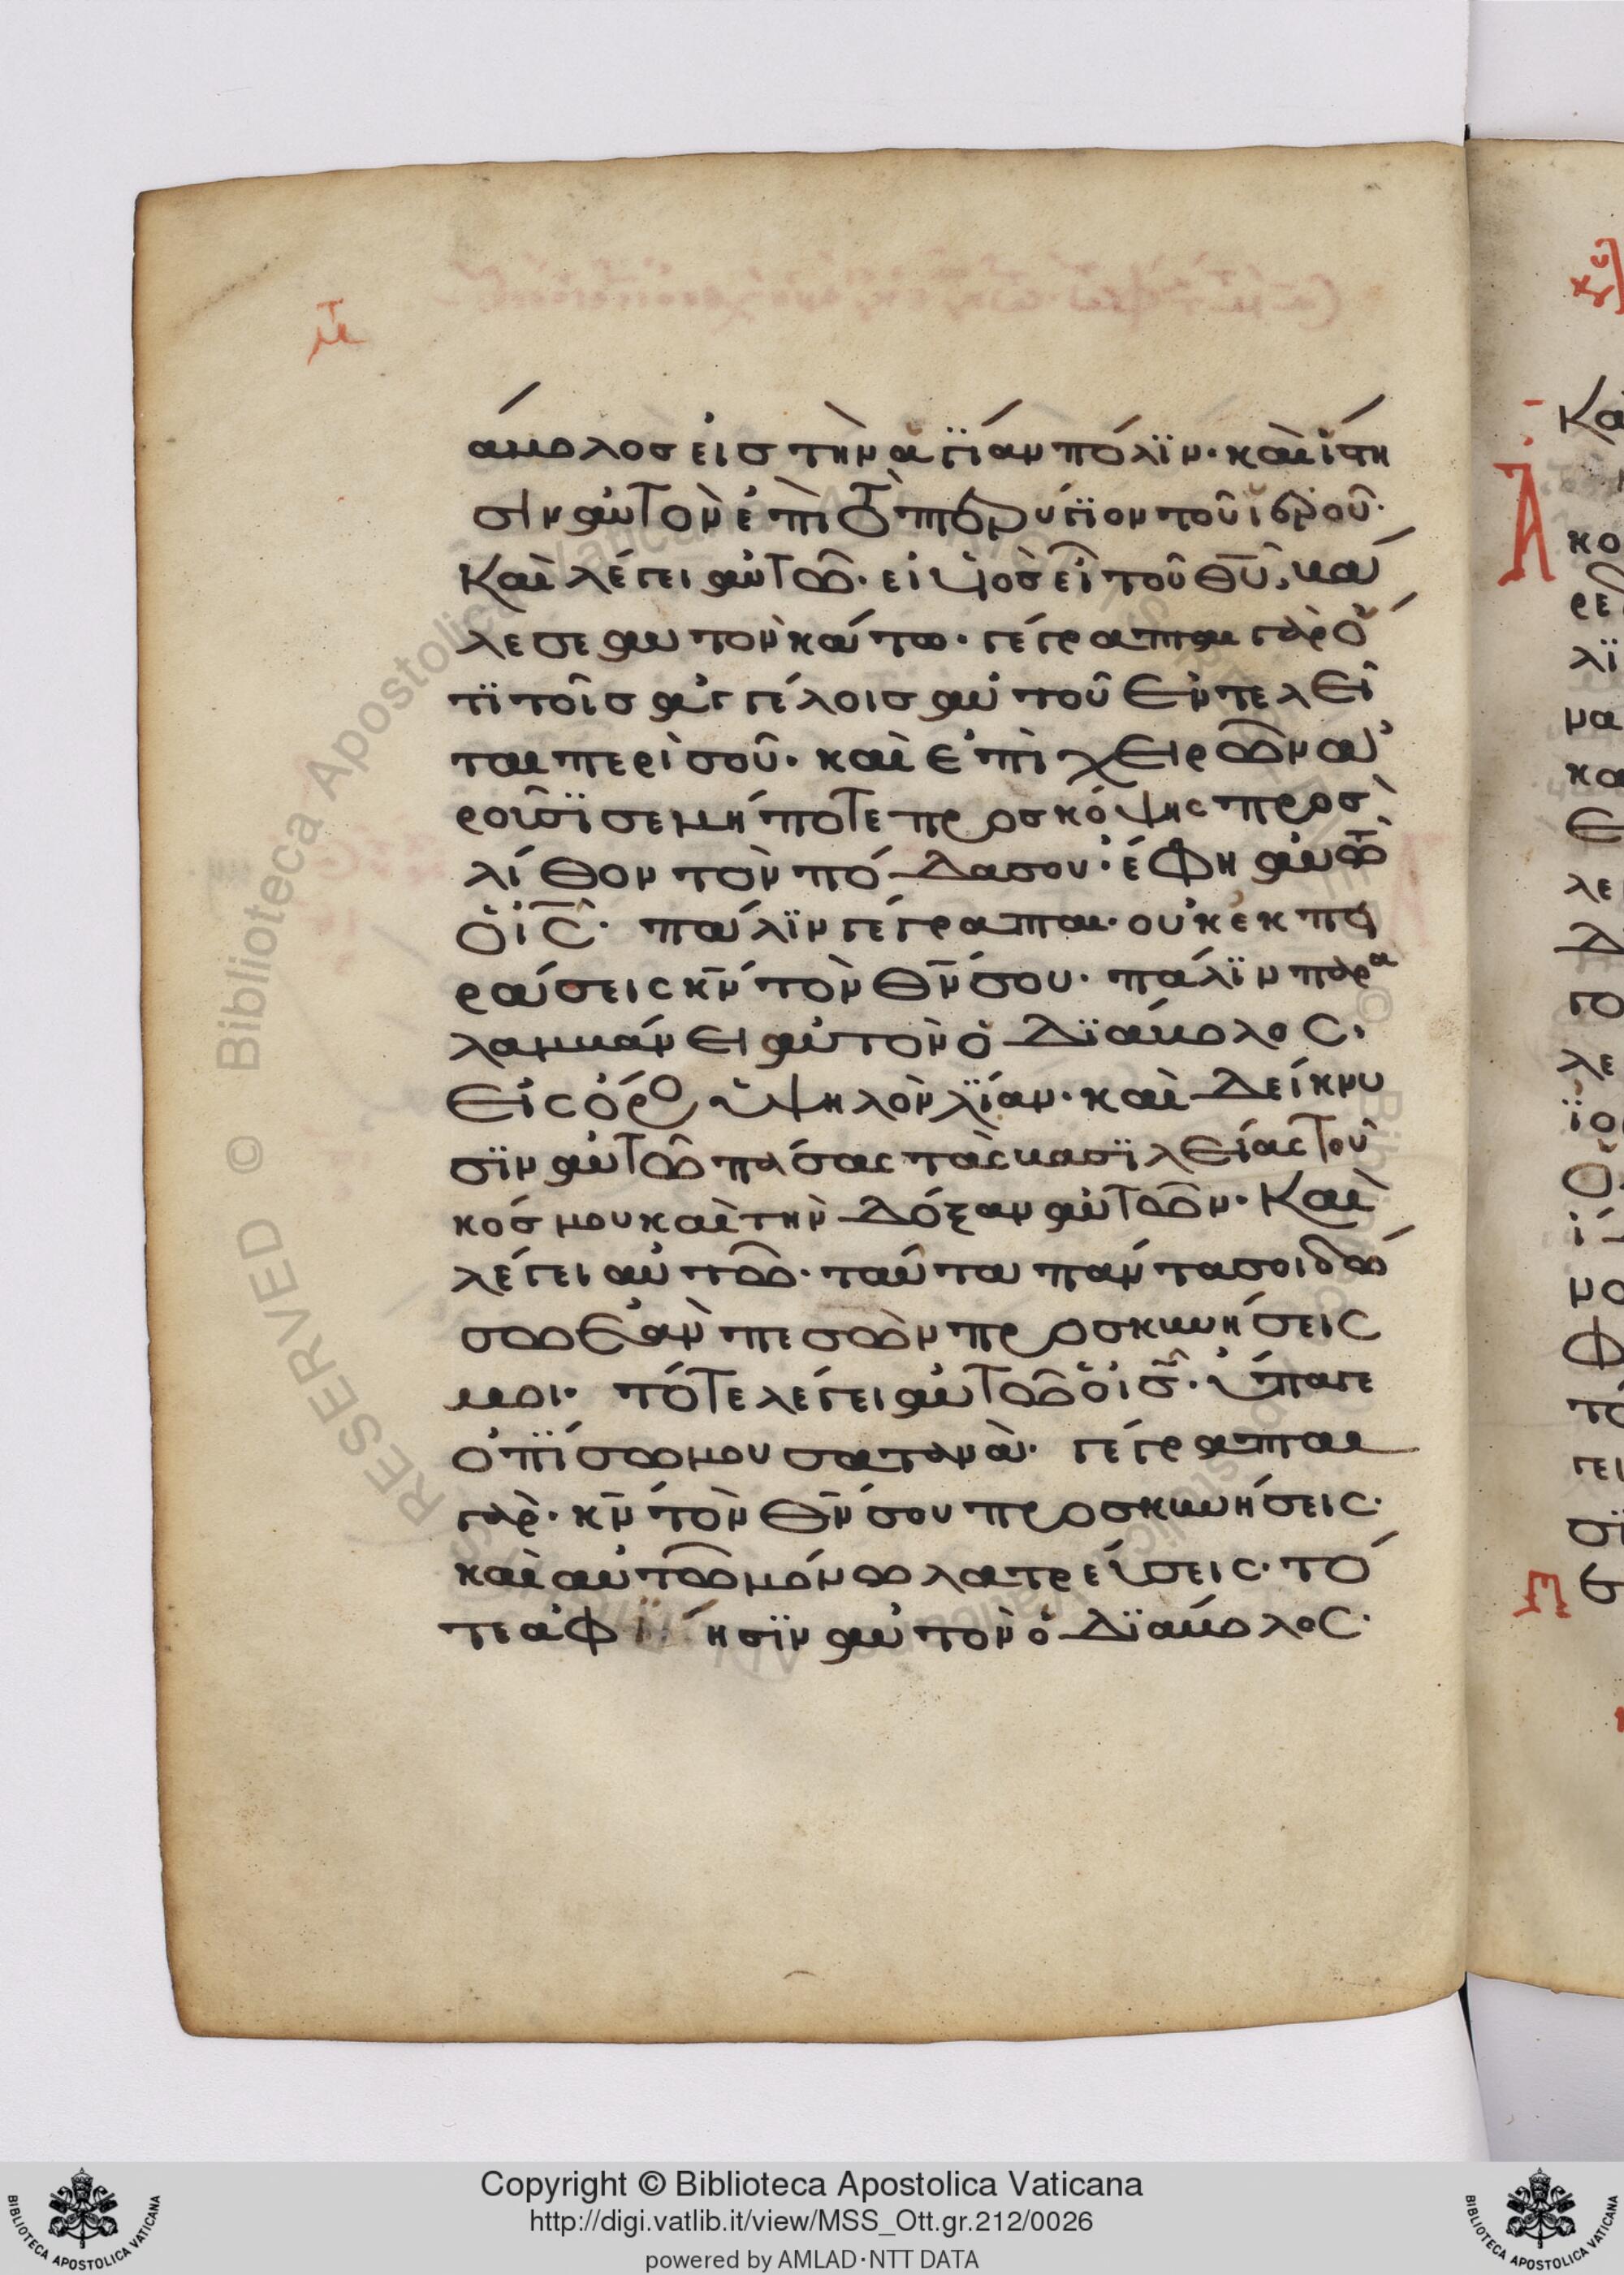 άβολος εἰς τὴν ἁγΐαν πόλϊν· καὶ ἵστη
σιν αὐτὸν ἐπὶ τὸ πτερύγϊον τοῦ ἱεροῦ·
Καὶ λέγει αὐτῶ· εἰ υἱὸς εἶ τοῦ θ̅υ̅, βά
λε σεαυτον κάτω· γέγραπται γὰρ ὅ
τϊ τοῖς ἀγγέλοις αὐτοῦ ἐντελεῖ
ται περὶ σοῦ· καὶ ἐπὶ χειρῶν ἀ
ροῦσϊ σε μήποτε προσκόψης προσ
λίθον τὸν πόδα σου· ἔφη αὐτῶ
ὁ ι̅ς̅· πάλϊν γέγραπται· οὐκ ἐκπει
ράσεις κ̅ν̅ τὸν θ̅ν̅ σου· πάλϊν παρα
λαμβάνει αὐτὸν ὁ Δϊάβολος·
Εἰς ὄρος ὑψηλὸν λΐαν· καὶ Δείκνυ
σϊν αὐτῶ πάσας τὰς βασϊλείας τοῦ
κόσμου καὶ τὴν Δόξαν αὐτῶν· Καὶ
λέγει αὐτῶ· ταῦτα πάντα σοι δώ
σω ἐὰν πεσὼν προσκυνήσεις
μοι· τότε λέγει αὐτῶ ὁ ι̅ς̅· ὕπαγε
ὀπΐσω μου σατανᾶ· γέγραπται
γὰρ· κ̅ν̅ τὸν θ̅ν̅ σου προσκυνήσεις·
καὶ αὐτῶ μόνω λατρεύσεις· τό
τε ἀφΐησϊν αὐτὸν ὁ Δϊάβολος·
Copyright © Biblioteca Apostolica Vaticana
http://digi.vatlib.it/view/MSS_Ott.gr.212/0026
powered by AMLAD·NTT DATA